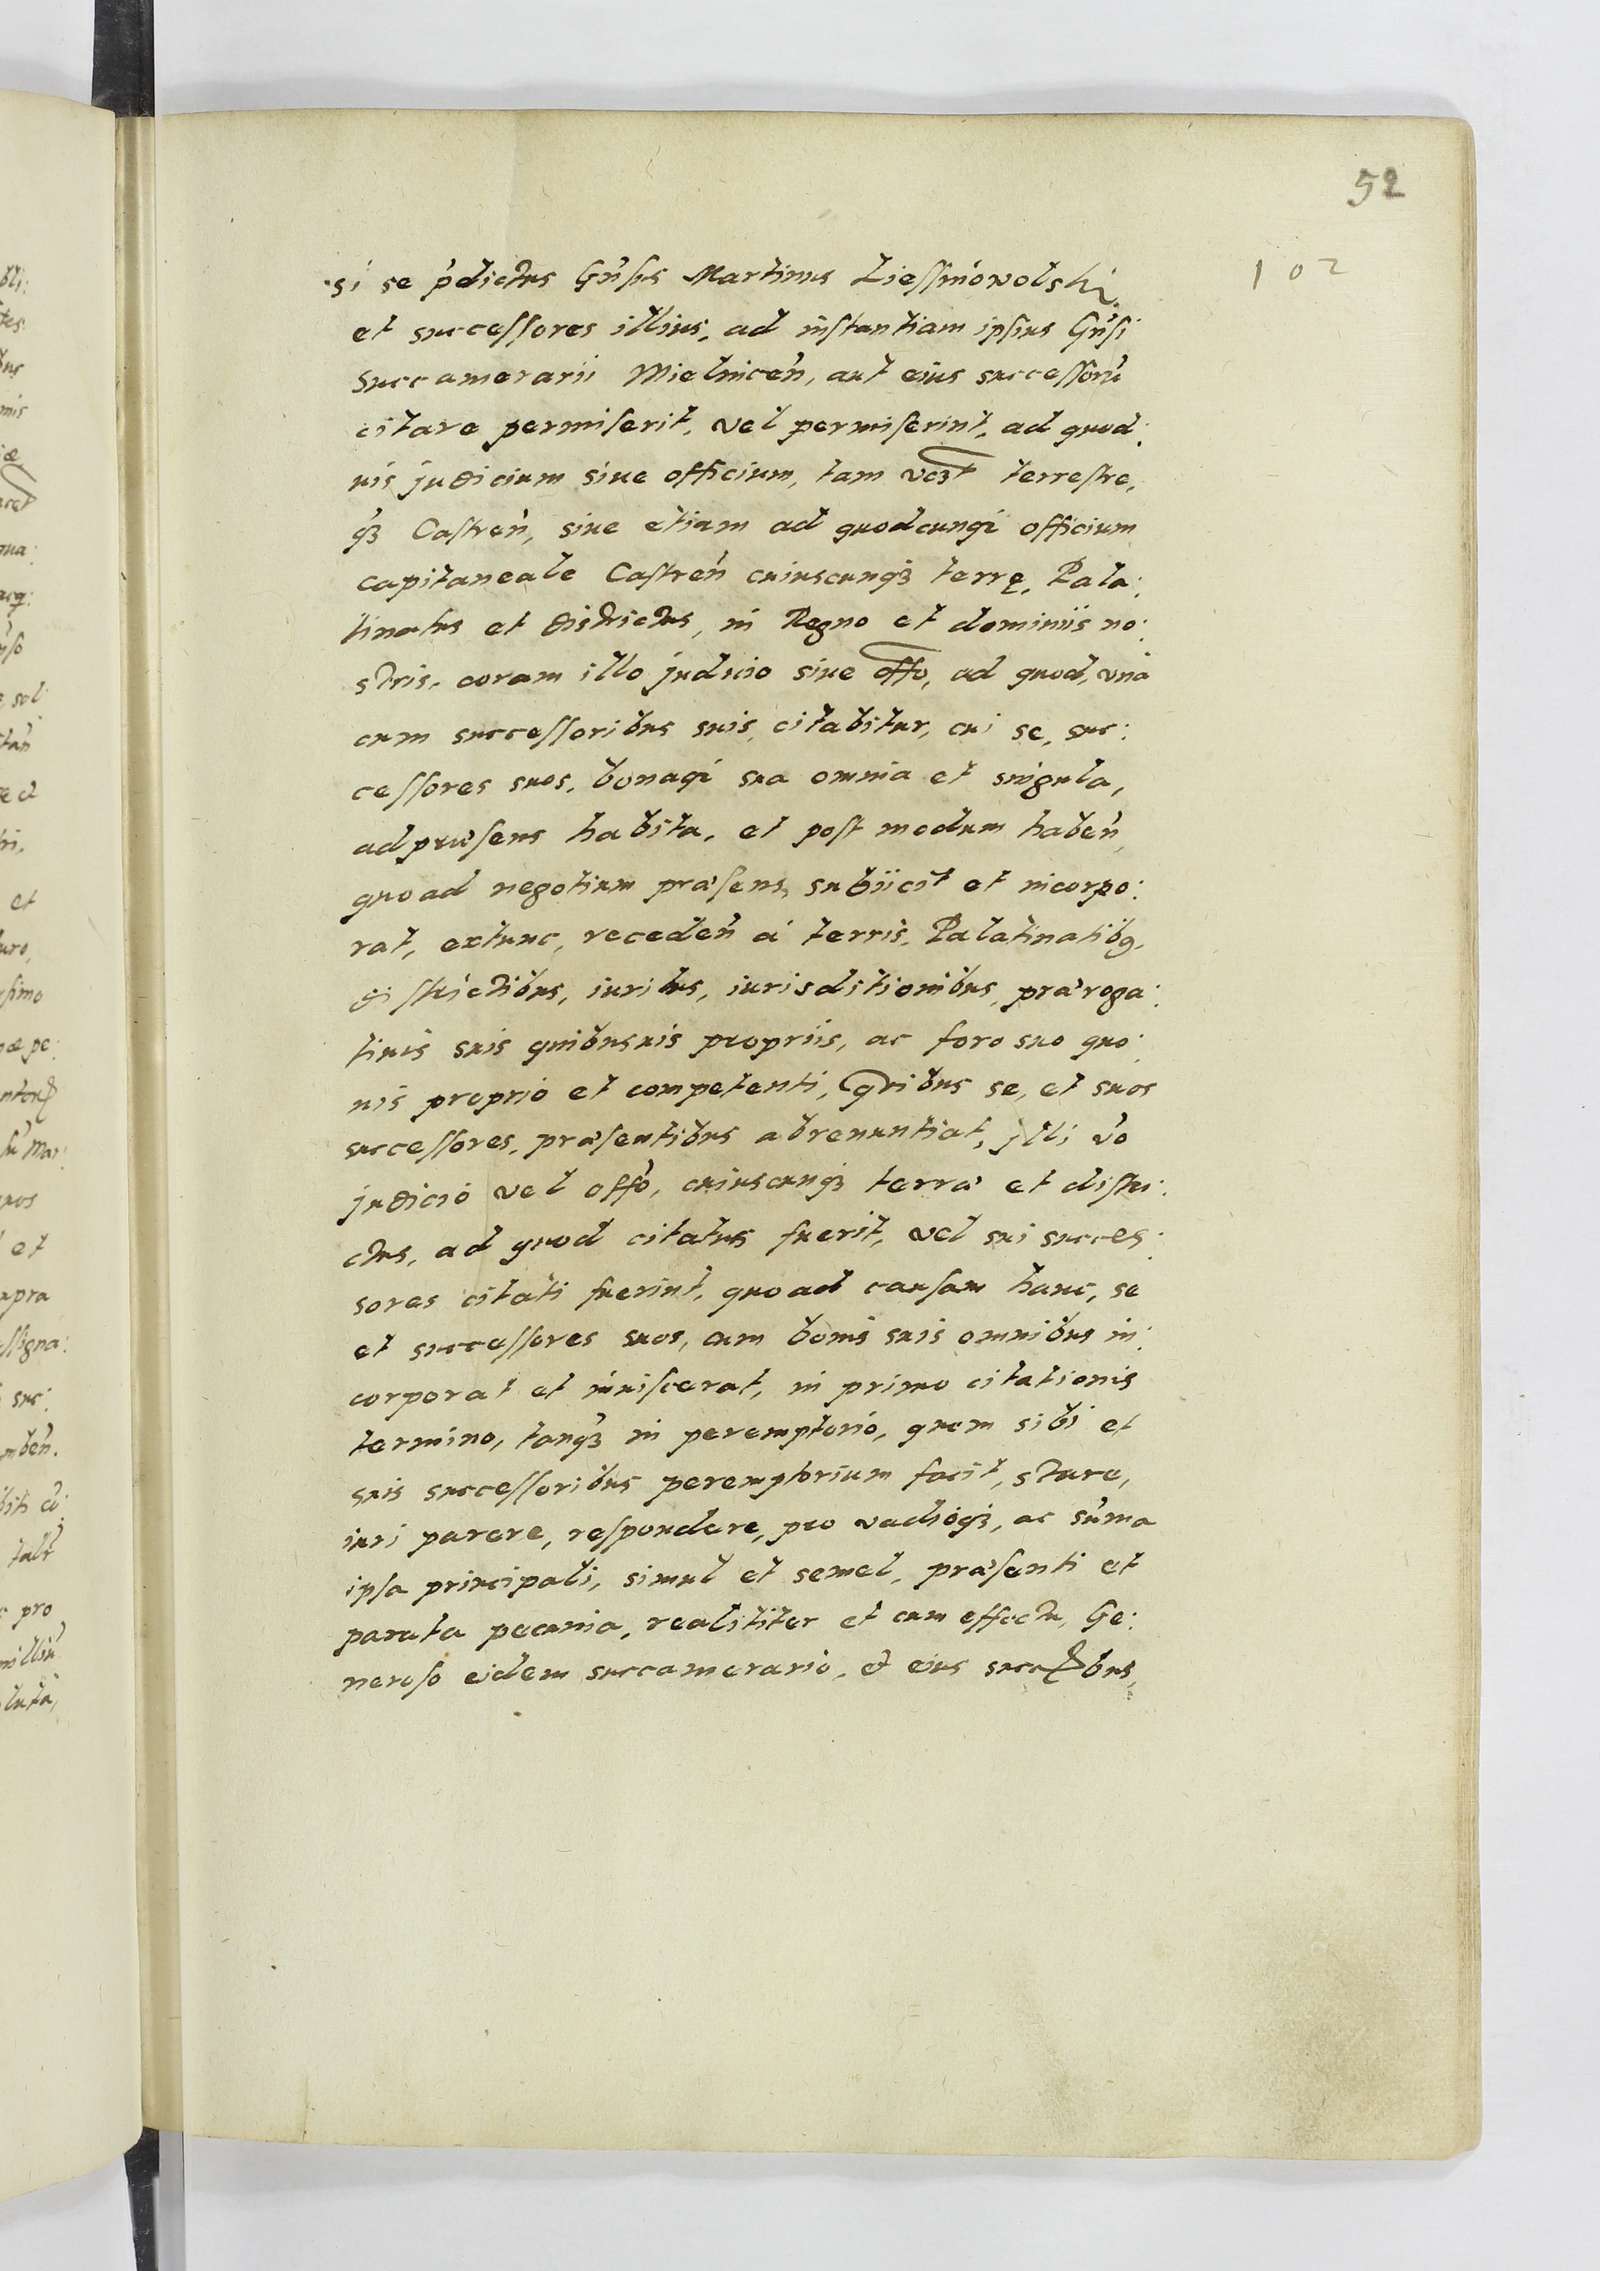 52
102
si se p̃dictus Gñsus Martinus Liessniowolski
et successores illius, ad instantiam ipsius Gñsi
Succamerarii Mielnicen̄, aut eius successorũ
citare permiserit, vel permiserint, ad quod:
uis judicium siue officium, tam terrestre,
q̃ꝫ Castren̄, siue etiam ad quodcunqꝫ officium
capitaneale Castren̄ cuiuscunqꝫ terrę, Pala:
tinatus et districtus, in Regno et dominiis no:
stris, coram illo judicio siue offo, ad quod, unà
cum successoribus suis, citabitur, cui se, suc:
cessores suos, bonaqꝫ sua omnia et singula,
ad præsens habita, et post modum haben̄,
quoad negotium præsens, subiicit et incorpo:
rat, extunc, receden̄ à terris, Palatinatibꝫ,
districtibus, iuribus, iurisditionibus, præroga:
tiuis suis quibusuis propriis, ac foro suo quo:
uis proprio et competenti, Quibus se, et suos
successores, præsentibus abrenuntiat, jlli v̄o
judicio vel offo, cuiuscunqꝫ terræ et distri:
ctus, ad quod citatus fuerit, vel sui succes:
sores citati fuerint, quoad causam hanc, se
et successores suos, cum bonis suis omnibus in:
corporat et inuiscerat, in primo citationis
termino, tanqꝫ in peremptorio, quem sibi et
suis successoribus peremptorium facit, stare,
iuri parere, respondere, pro vadioqꝫ, ac sum̃a
ipsa principali, simul et semel, præsenti et
parata pecunia, realititer et cum effectu, Ge:
neroso eidem succamerario, et eius succꝭbus,